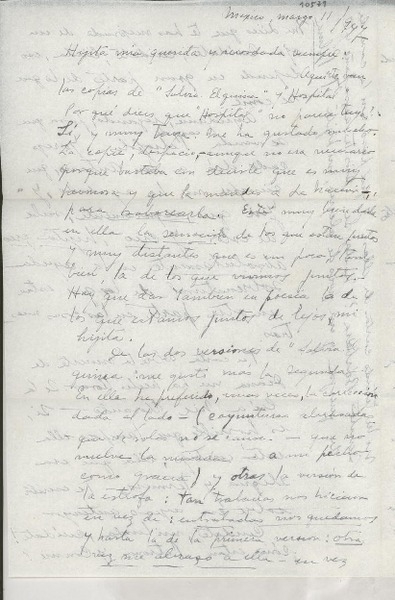 10579
Mexico, marzo 11/
Hijita mía querida y recordada siempre
las copias de "Sobria Elquina" y "Hospital"
Por qué dices que "Hospital" no parece tuyo?
Sí, y muy tuyo me ha gustado mucho.
La copié, despacio, aunque no era necesario
porque bastaba con decirte que es muy
hermoso y que la mandes a La Nación,
para saborearla. Está muy bien dada
en ella la sensación de los que están juntos
y muy distantes que es un poco tam
bien la de los que vivimos juntos.
Hay que dar también en poesía la de
los que estamos juntos de lejos, mi
hijita.
De las dos versiones de "Sobria
quina" me gustó más la segunda
en ella he preferido, unas veces, la corrección
dada al lado — (coyunturas
que no
vuelve la a mi pecho
como gracia) y otras la versión de
la estrofa: tan trabadas nos hicieron
en vez de: entrabadas nos quedamos
y hasta la de la primera versión: otra
vez me abrazo a ella — en vez